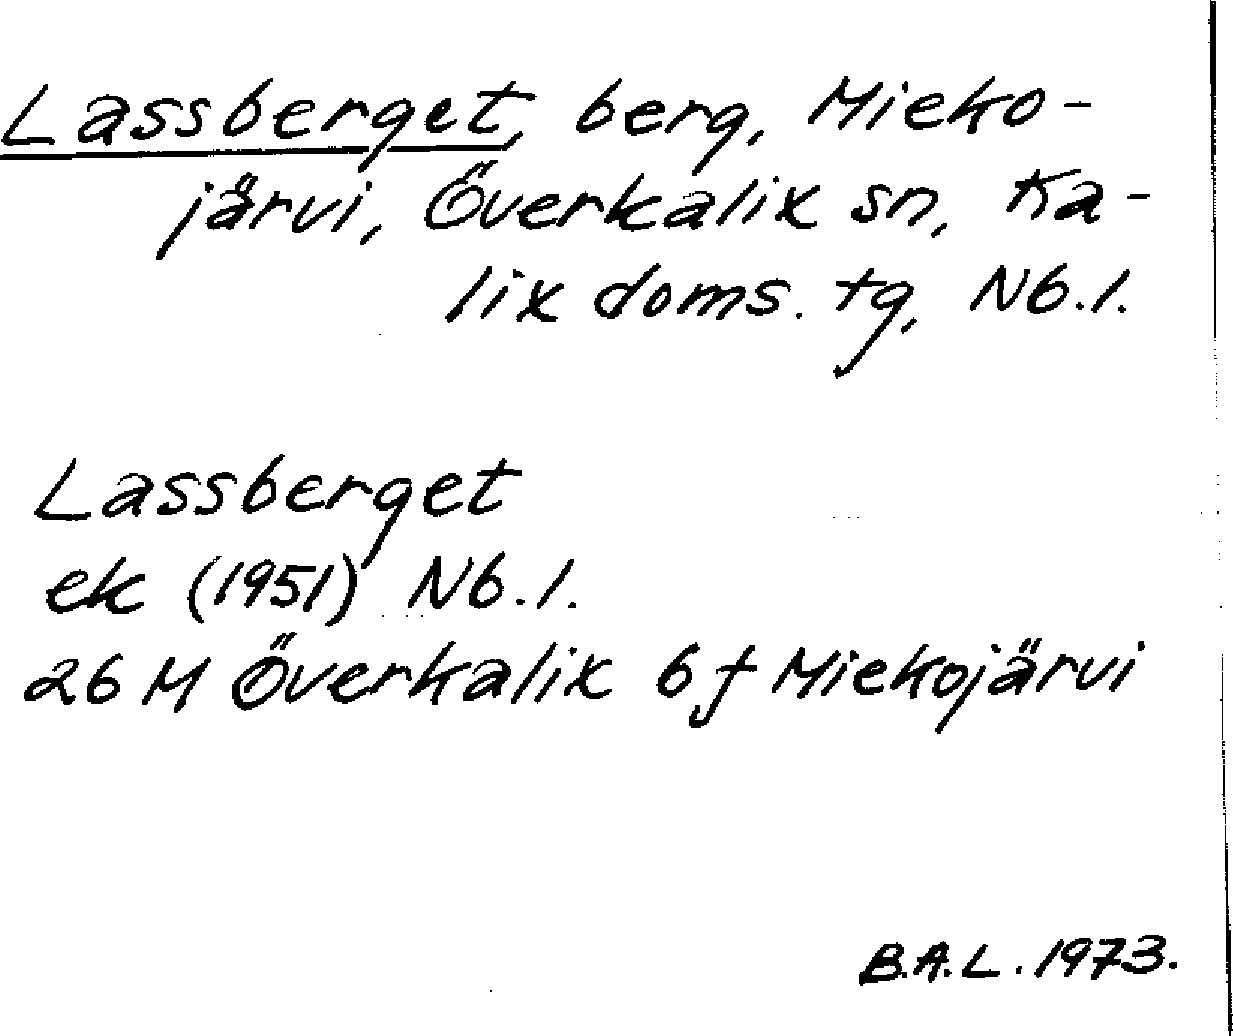 Lassberget, berg, Mieko-
järvi, Överkalix sn, Ka-
lix doms. tg, Nb. l.
Lassberget
ek (1951) Nb. l.
26 M Överkalix 6 f Miekojärvi
B.A.L. 1973.